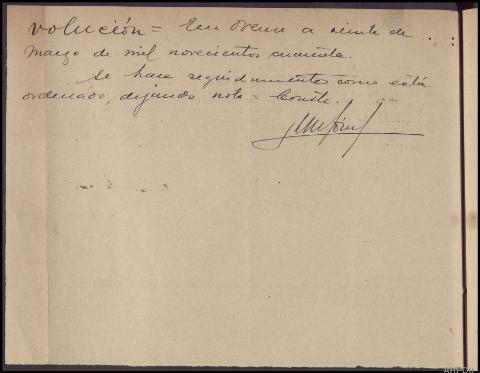 volución = En Orense a veinte de
Marzo de mil novecientos cuarenta.
Se hace seguidamente como está
ordenado, dejando nota = Conste.